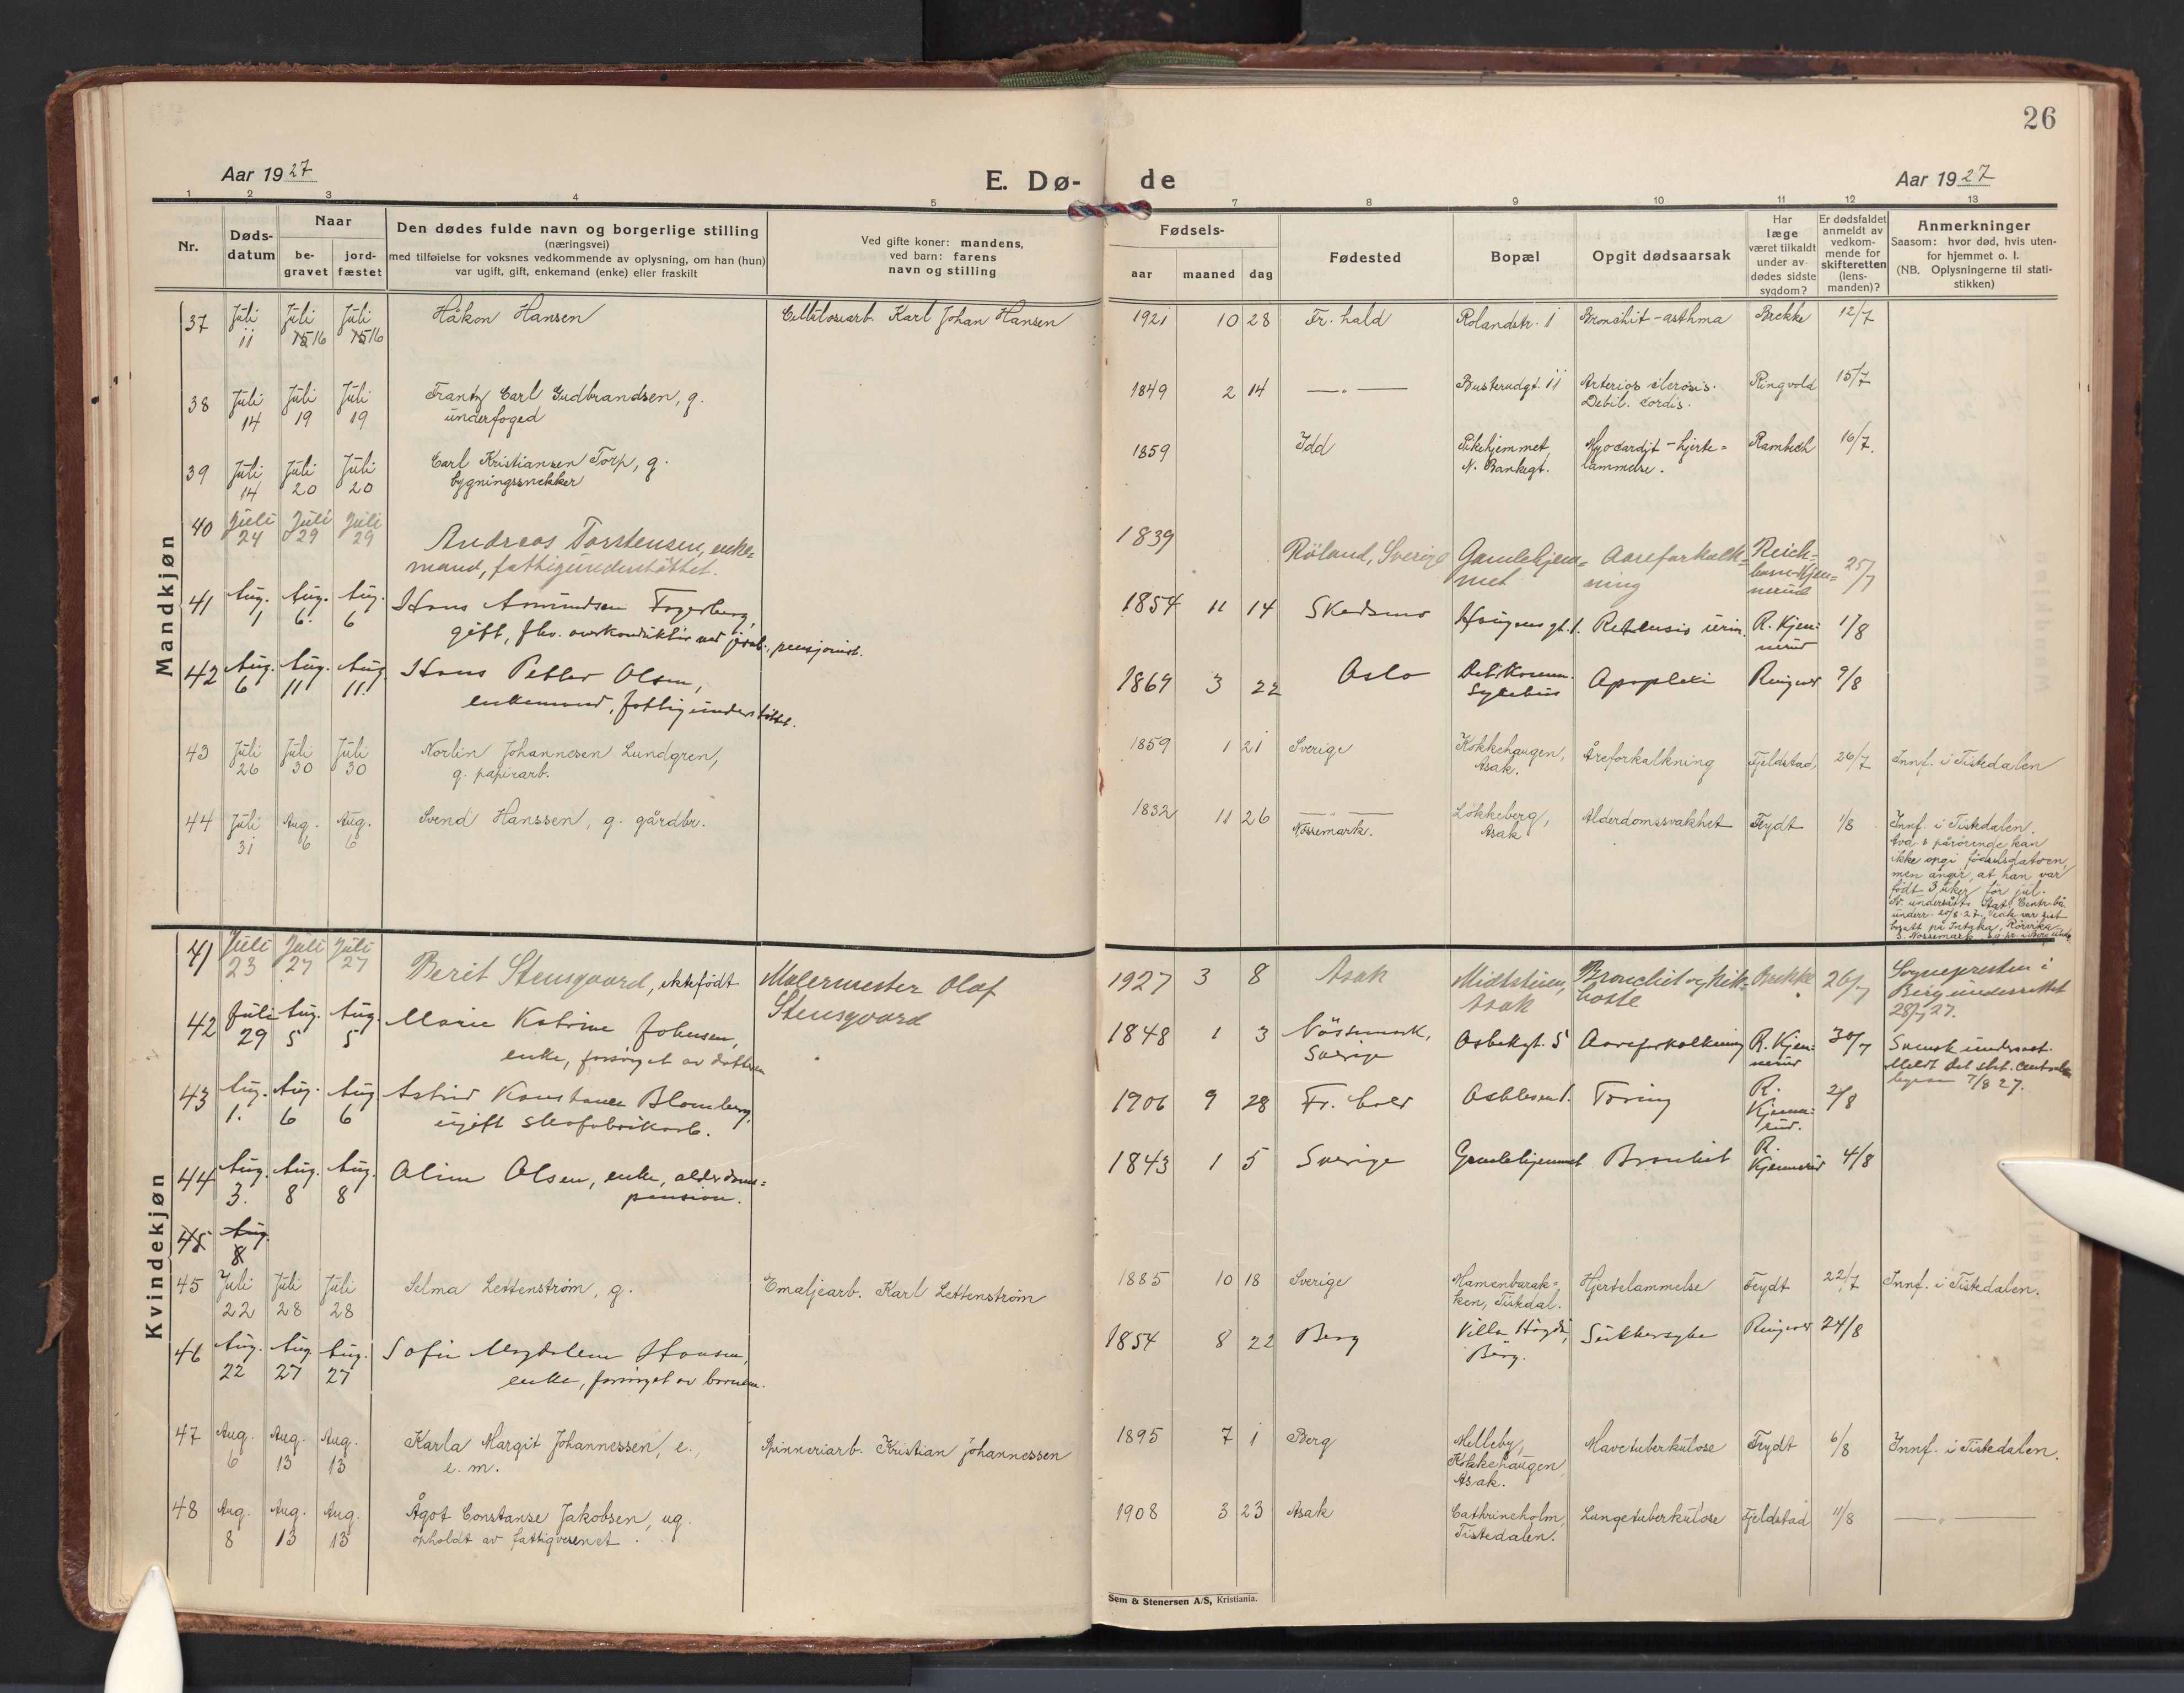 26
Aar 1927
E. Dø-
de
Aar 1927
1 2 3 4 5 7 8 9 10 11 12 13
Nr.
Døds-
datum
Naar
be-
gravet
jord-
fæstet
Den dødes fulde navn og borgerlige stilling
(næringsvei)
med tilføielse for voksnes vedkommende av oplysning, om han (hun)
var ugift, gift, enkemand (enke) eller fraskilt
Ved gifte koner: mandens,
ved barn: farens
navn og stilling
Fødsels-
aar maaned dag
Fødested
Bopæl
Opgit dødsaarsak
Har
læge
været tilkaldt
under av-
dødes sidste
sygdom?
Er dødsfaldet
anmeldt av
vedkom-
mende for
skifteretten
(lens-
manden)?
Anmerkninger
Saasom: hvor død, hvis uten-
for hjemmet o. l.
(NB. Oplysningerne til stati-
stikken)
Mandkjøn
37 Juli Juli Juli Håkon Hansen Cellulosearb. Karl Johan Hansen 1921 10 28 Fr. hald Rolandstr. 1 Bronchit - asthma Brekke 12/7
11 15 16 15 16
38 Juli Juli Juli Frantz Carl Gudbrandsen, g. 1849 2 14 —〃— Busterudgt. 11 Arterios clerosis. Ringvold 15/7
14 19 19 underfoged Debil. cordis.
39 Juli Juli Juli Carl Kristiansen Torp, g. 1859 Idd Sykehjemmet, Myocardit - hjerte= Rambech 16/7.
14 20 20 bygningssnekker N. Bankegt. lammelse.
40 Juli Juli Juli Andreas Torstensen, enke= 1839 Röland, Sverige Gamlehjem= Aareforkalk= 25/7
24 29 29 mand, fattigunderstöttet. met ning
41 Aug. Aug. Aug. Hans Amundsen Fagerberg, 1854 11 14 Skedsmo Haugens gt. 1. Retensio urin. R. Kjen= 1/8
1 6. 6 gift, fhv. overkonduktör ved jernb., pensjonist. nerud
42 Aug. Aug. Aug. Hans Petter Olsen, 1869 3 22 Oslo Det komm. Apoplexi Ringvold 9/8
6 11 11 enkemand, fattigunderstöttet. Sykehus
43 Juli Juli Juli Norlin Johannesen Lundgren, 1859 1 21 Sverige Kokkehaugen, Åreforkalkning Fjeldstad, 26/7 Innf. i Tistedalen
26 30 30 g. papirarb. Asak.
44 Juli Aug. Aug. Svend Hanssen, g. gårdbr. 1832 11 26 —〃— Lökkeberg, Alderdomssvakhet Feydt 1/8 Innf. i Tistedalen.
31 6 6 Nössemark. Asak
Avd s pårörende kan
ikke opgi födselsdatoen,
men angir, at han var
födt 3 uker för jul.
Kvindekjøn
41 Juli Juli Juli Berit Stensgaard, ektefödt Malermester Olaf 1927 3 8 Asak Midtstuen, Bronchit og kik= Brekke 26/7 Sognepresten i
23 27 27 Stensgaard Asak hoste Berg underrettet
28/7 27.
42 Juli Aug. Aug. Marie Katrine Johnsen, 1848 1 3 Nössemark, Osbekgt. 5 Aareforkalkning R. Kjen= 30/7 Svensk undersaat.
29 5 5 enke, forsörget av datteren Sverige nerud Meldt det stat. central=
byraa 7/8 27.
43 Aug. Aug. Aug. Astrid Konstance Blomberg, 1906 9 28 Fr. hald Tæring R. 2/8
1. 6 6 ugift skofabrikarb. Kjenne=
rud.
44 Aug. Aug. Aug. Oline Olsen, enke, alderdoms= 1843 1 5 Sverige Gamlehjemmet Bronkit R. 4/8
3. 8 8 pension. Kjennerud
45 Aug.
8
45 Juli Juli Juli Selma Lettenström, g. Emaljearb. Karl Lettenström 1885 10 18 Sverige Mamenbarak= Hjertelammelse Feydt 22/7 Innf. i Tistedalen.
22 28 28 ken, Tistedal.
46 Aug. Aug. Aug. Sofie Magdalene Hansen, 1854 8 22 Berg Villa Höyda, Sukkersyke Ringvold 24/8
22 27 27 enke, forsörget av barnene. Berg.
47 Aug. Aug. Aug. Karla Margit Johannessen, e., Spinneriarb. Kristian Johannessen 1895 7 1 Berg Melleby, Mavetuberkulose Feydt 6/8 Innf. i Tistedalen.
6 13 13 e. m. Kokkehaugen,
Asak.
48 Aug. Aug. Aug. Ågot Constanse Jakobsen, ug. 1908 3 23 Asak Cathrineholm, Lungetuberkulose Fjeldstad 11/8 —〃—
8 13 13 opholdt av fattigvesenet. Tistedalen.
Sem & Stenersen A/S, Kristiania.